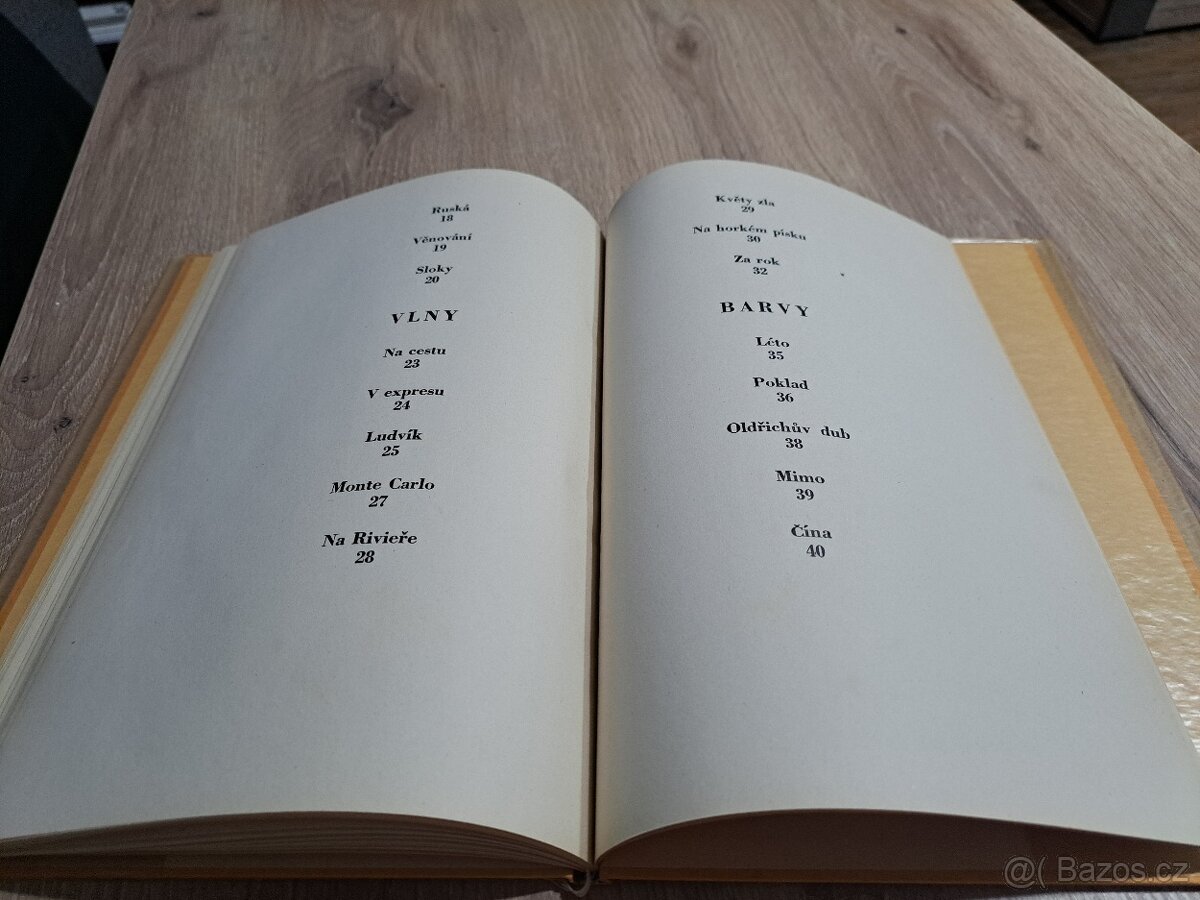 Ruská
18
Věnování
19
Sloky
20
VLNY
Na cestu
23
V expresu
24
Ludvík
25
Monte Carlo
27
Na Rivieře
28
Květy zla
29
Na horkém písku
30
Za rok
32
BARVY
Léto
35
Poklad
36
Oldřichův dub
38
Mimo
39
Čína
40
@( Bazos.cz